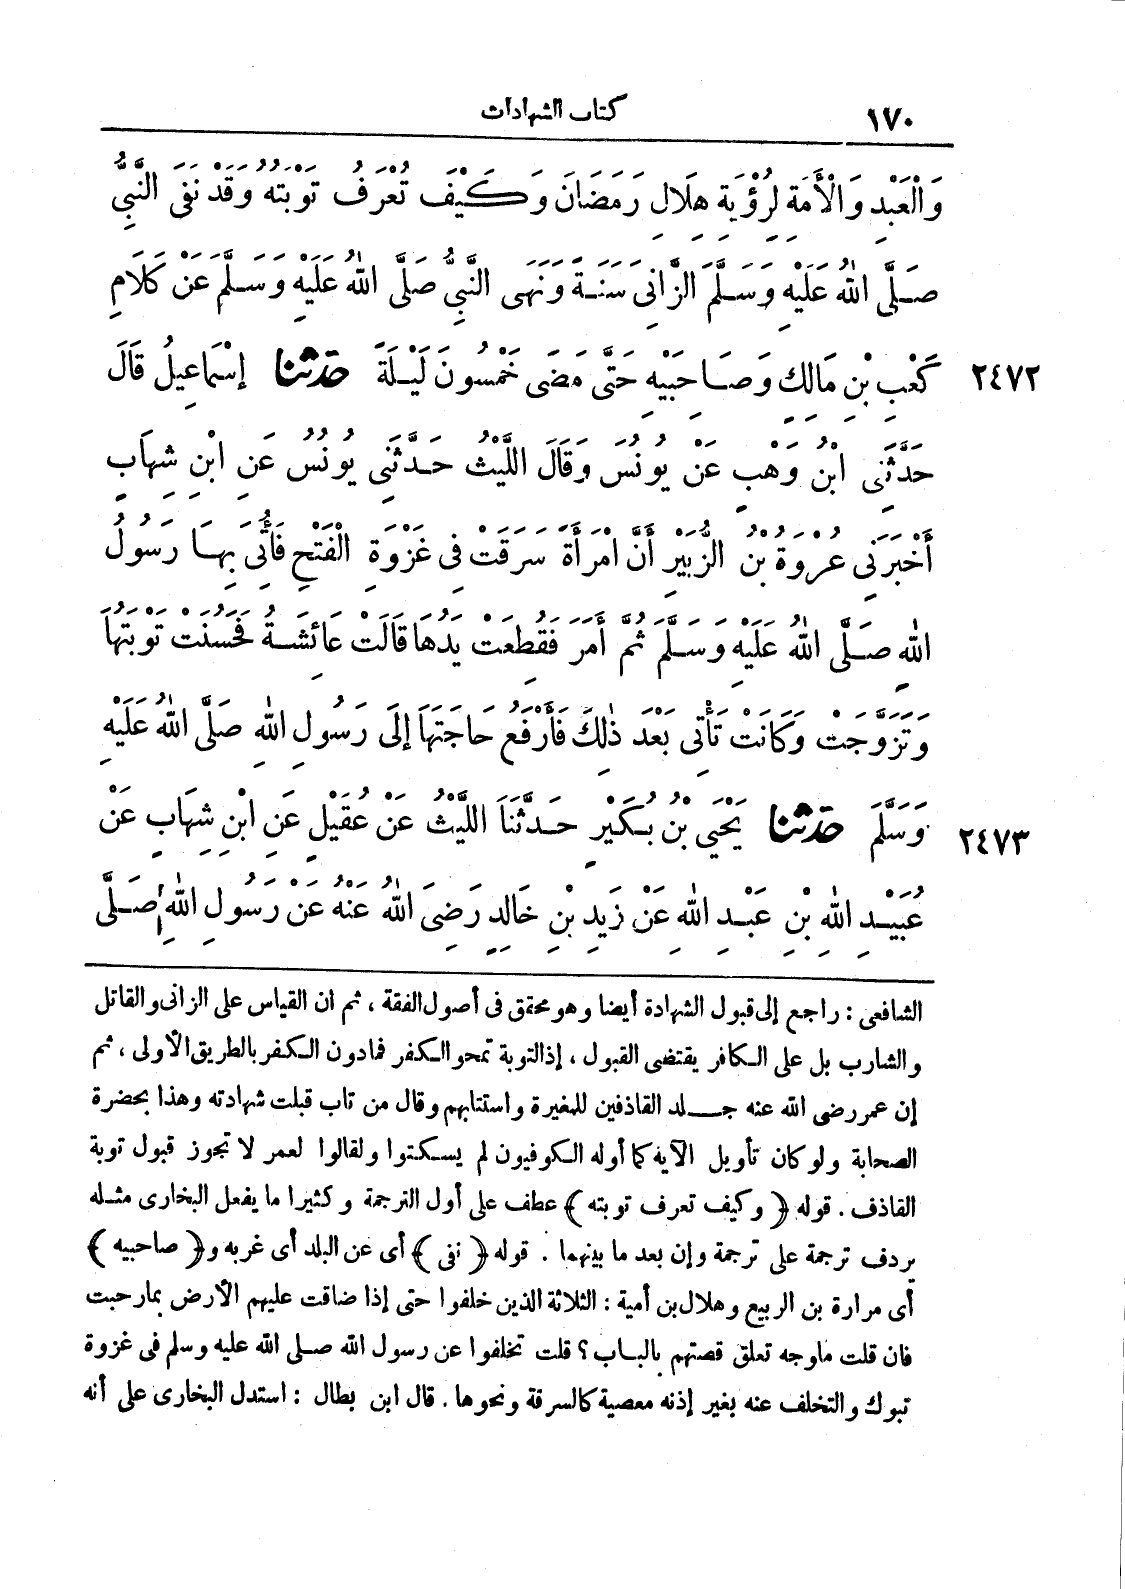 ١٧٠
كتاب الشهادات
وَالْعَبْدِ وَالْأَمَةِ لِرُؤْيَةِ هِلَالِ رَمَضَانَ وَكَيْفَ تُعْرَفُ تَوْبَتُهُ وَقَدْ نَفَى النَّبِيُّ
صَلَّى اللهُ عَلَيْهِ وَسَلَّمَ الزَّانِيَ سَنَةً وَنَهَى النَّبِيُّ صَلَّى اللهُ عَلَيْهِ وَسَلَّمَ عَنْ كَلَامِ
٢٤٧٢ كَعْبِ بْنِ مَالِكٍ وَصَاحِبَيْهِ حَتَّى مَضَى خَمْسُونَ لَيْلَةً حَدَّثَنَا إِسْمَاعِيلُ قَالَ
حَدَّثَنِي ابْنُ وَهْبٍ عَنْ يُونُسَ وَقَالَ اللَّيْثُ حَدَّثَنِي يُونُسُ عَنِ ابْنِ شِهَابٍ
أَخْبَرَنِي عُرْوَةُ بْنُ الزُّبَيْرِ أَنَّ امْرَأَةً سَرَقَتْ فِي غَزْوَةِ الْفَتْحِ فَأُتِيَ بِهَا رَسُولُ
اللهِ صَلَّى اللهُ عَلَيْهِ وَسَلَّمَ ثُمَّ أَمَرَ فَقُطِعَتْ يَدُهَا قَالَتْ عَائِشَةُ فَحَسُنَتْ تَوْبَتُهَا
وَتَزَوَّجَتْ وَكَانَتْ تَأْتِي بَعْدَ ذٰلِكَ فَأَرْفَعُ حَاجَتَهَا إِلَى رَسُولِ اللهِ صَلَّى اللهُ عَلَيْهِ
٢٤٧٣ وَسَلَّمَ حَدَّثَنَا يَحْيَى بْنُ بُكَيْرٍ حَدَّثَنَا اللَّيْثُ عَنْ عُقَيْلٍ عَنِ ابْنِ شِهَابٍ عَنْ
عُبَيْدِ اللهِ بْنِ عَبْدِ اللهِ عَنْ زَيْدِ بْنِ خَالِدٍ رَضِيَ اللهُ عَنْهُ عَنْ رَسُولِ اللهِ صَلَّى
الشافعى : راجع إلى قبول الشهادة أيضا وهو محقق فى أصول الفقة ، ثم ان القياس على الزانى والقاتل
والشارب بل على الكافر يقتضى القبول ، إذ التوبة تمحو الكفر فمادون الكفر بالطريق الأولى ، ثم
إن عمر رضى الله عنه جلد القاذفين للمغيرة واستتابهم وقال من تاب قبلت شهادته وهذا بحضرة
الصحابة ولو كان تأويل الآية كما أوله الكوفيون لم يسكتوا ولقالوا لعمر لا تجوز قبول توبة
القاذف . قوله ﴿ وكيف تعرف توبته ﴾ عطف على أول الترجمة وكثيرا ما يفعل البخارى مثله
يردف ترجمة على ترجمة وإن بعد ما بينهما . قوله ﴿ نفى ﴾ أى عن البلد أى غربه و ﴿ صاحبيه ﴾
أى مرارة بن الربيع وهلال بن أمية : الثلاثة الذين خلفوا حتى إذا ضاقت عليهم الأرض بمارحبت
فان قلت ماوجه تعلق قصتهم بالباب ؟ قلت تخلفوا عن رسول الله صلى الله عليه وسلم فى غزوة
تبوك والتخلف عنه بغير إذنه معصية كالسرقة ونحوها . قال ابن بطال : استدل البخارى على أنه